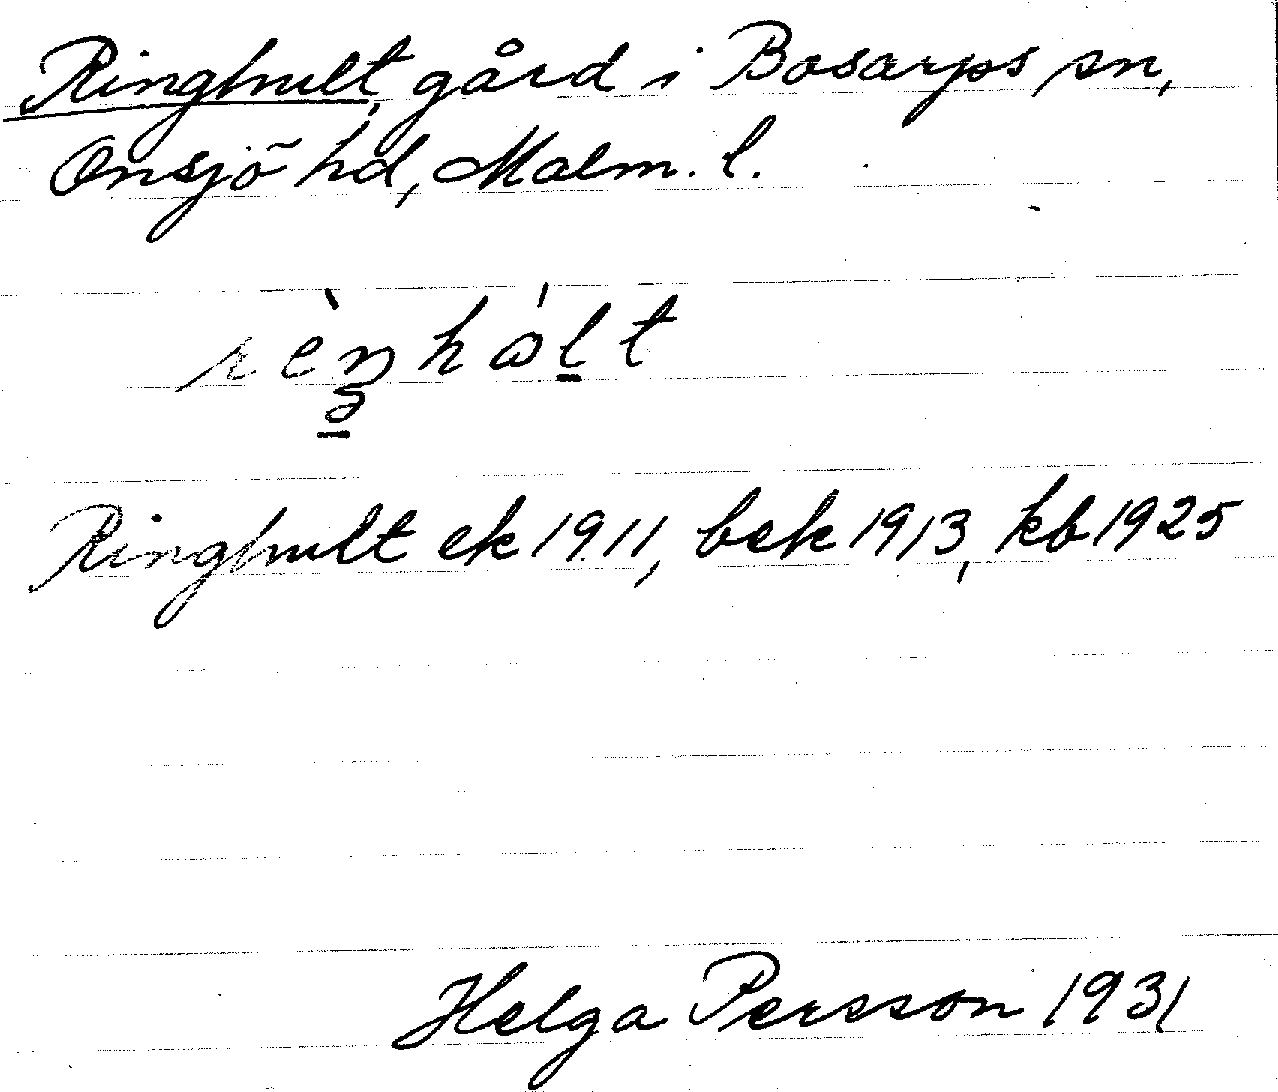 Ringhult, gård i Bosarps sn,
Onsjö hd, Malm. l.
Ringhult ek 1911, bek 1913, kb 1925
Helga Persson 1931